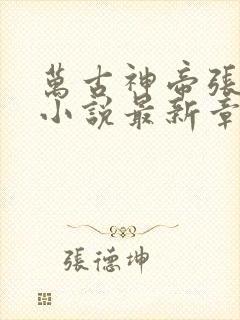 萬古神帝張
小說最新章
張德坤